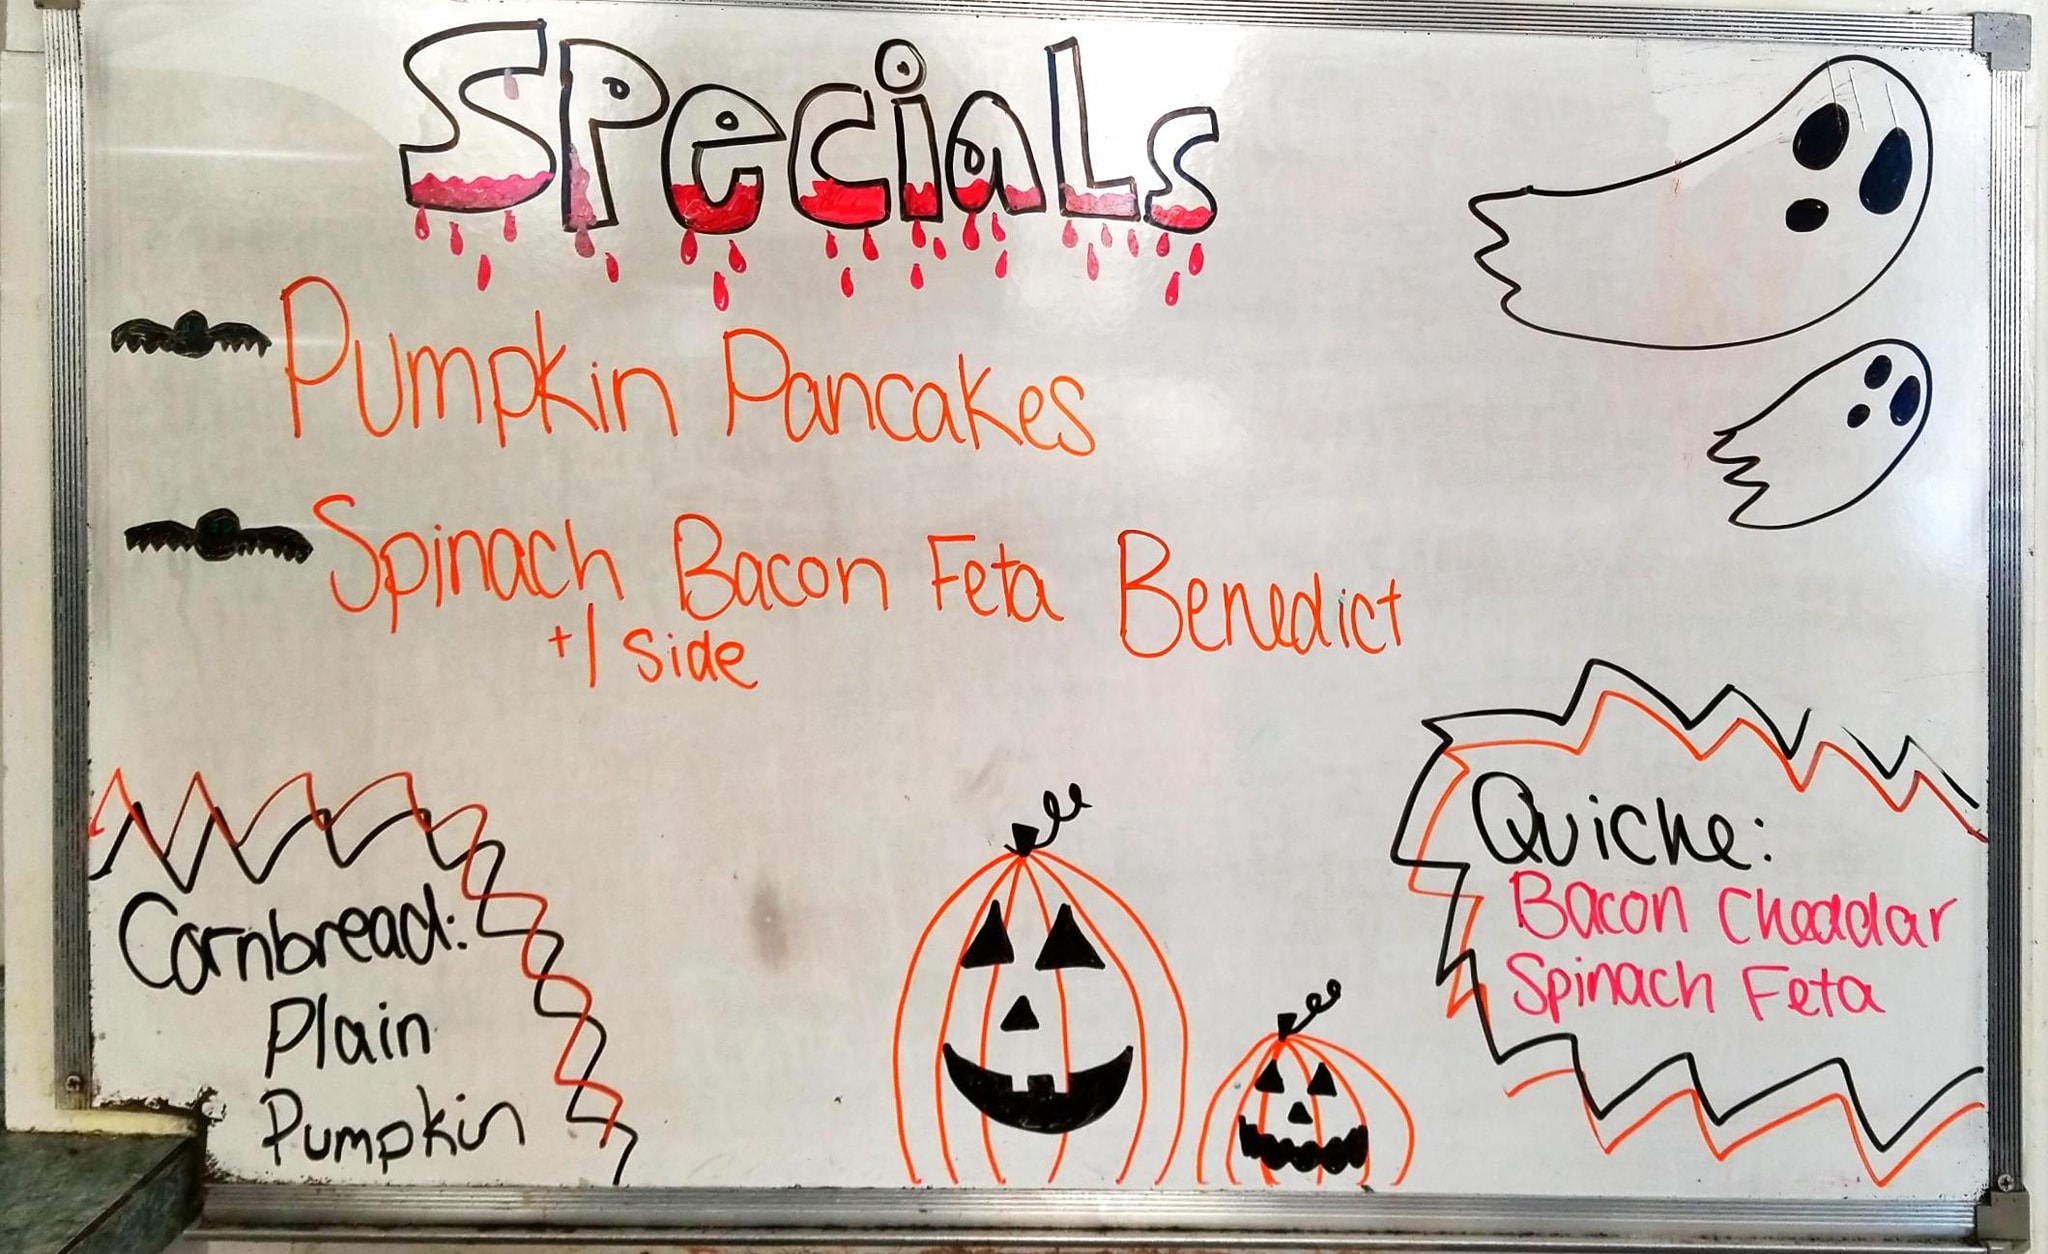 Specials
Pumpkin Pancakes
Spinach Bacon Feta Benedict
+1 side
Cornbread:
Plain
Pumpkin
Quiche:
Bacon Cheddar
Spinach Feta